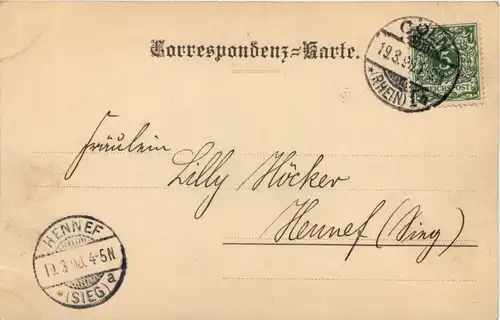 Correspondenz-Karte.
CÖLN
19.3.98
*(RHEIN) 1*
5
REICHSPOST
Fräulein
Lilly Höcker
Hennef (Sieg)
HENNEF
19.3.98. 4-5N.
*(SIEG) a